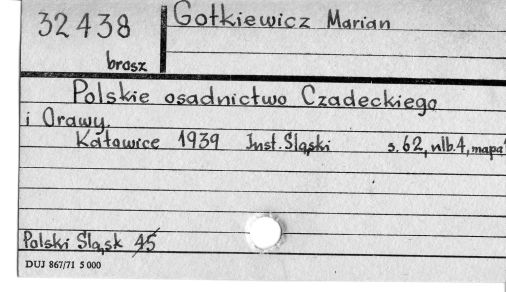 32438
brosz
Gotkiewicz Marian
Polskie osadnictwo Czadeckiego
i Orawy.
Katowice 1939 Inst. Śląski s. 62, nlb. 4, mapa
Polski Śląsk 45
DUJ 867/71 5 000